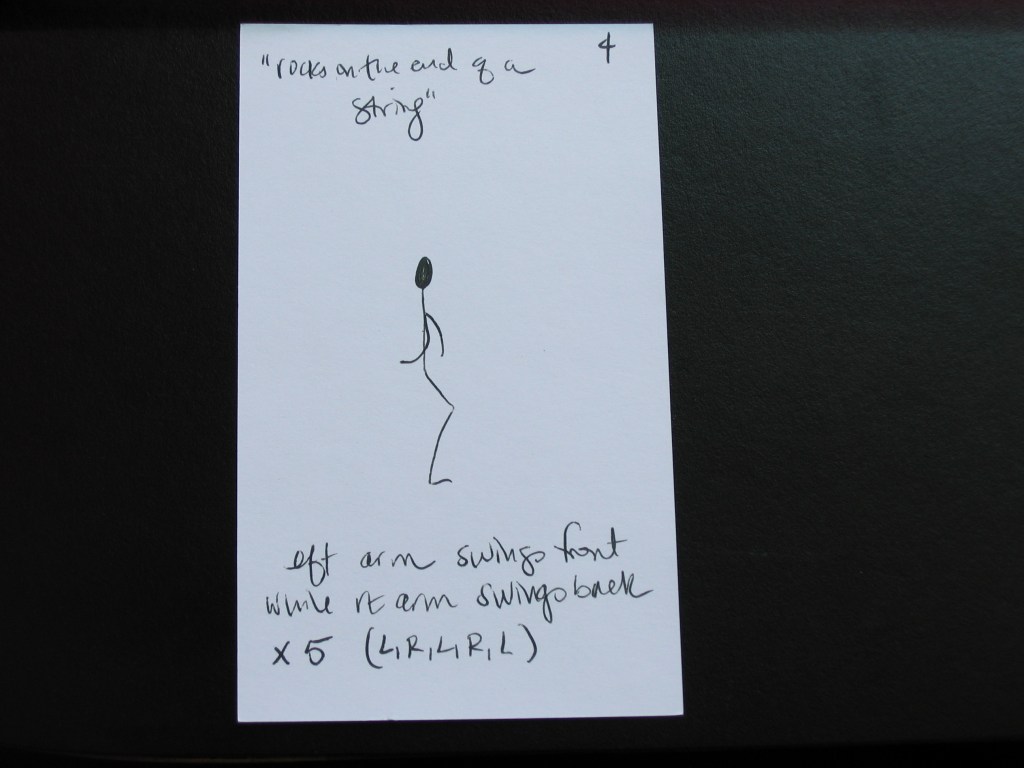 "rocks on the end of a 4
string"
eft arm swings front
while rt arm swings back
x 5 (L, R, L, R, L)